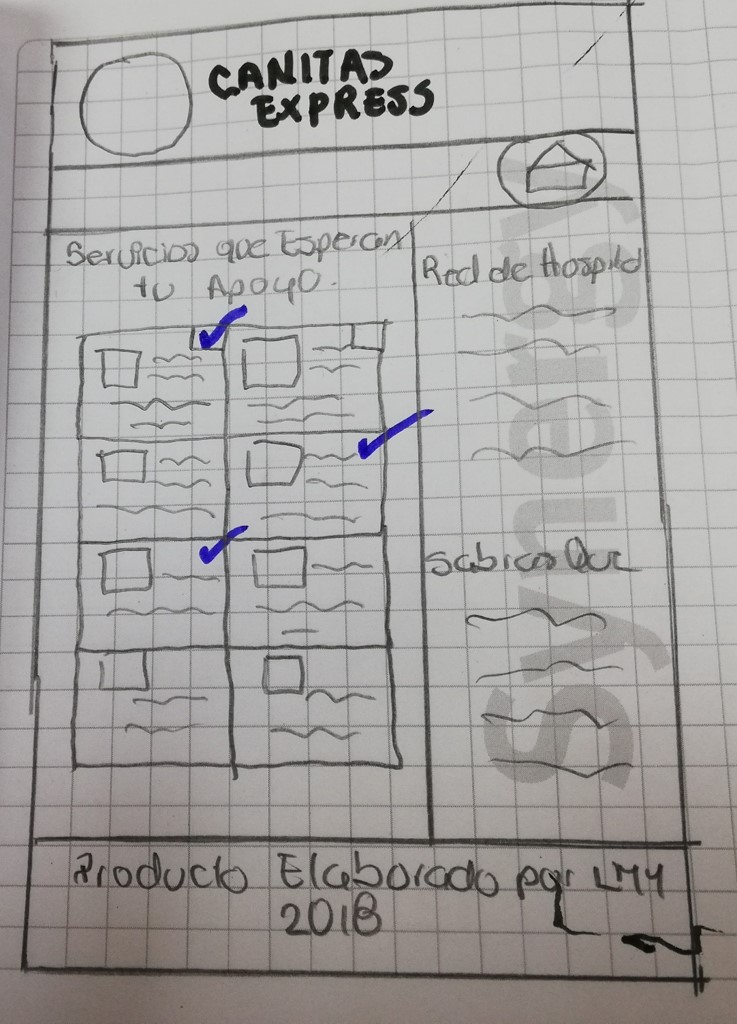 CANITAS
EXPRESS
Servicios que Esperan
tu Apoyo.
Red de Hospital
Sabias Que
Producto Elaborado por LMY
2018
Synergy